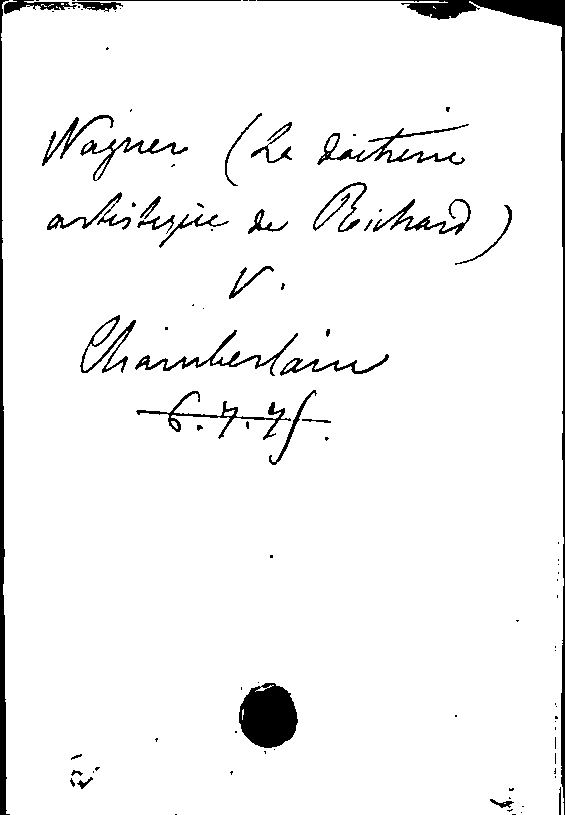 Wagner (La doctrine
artistique de Richard)
V.
Chamberlain
6.7.75.